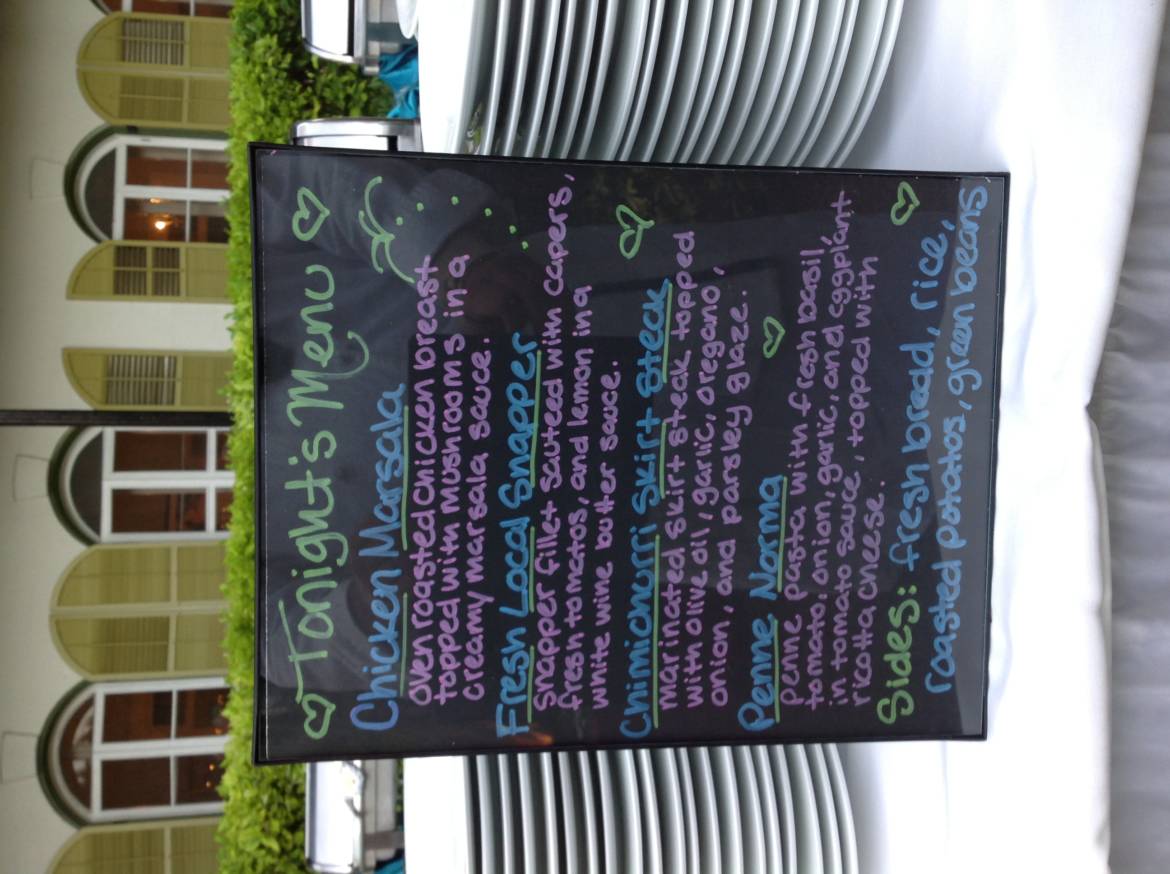 Tonight's Menu
Chicken Marsala
oven roasted chicken breast
topped with mushrooms in a
creamy marsala sauce.
Fresh Local Snapper
snapper fillet sauteed with capers,
fresh tomatos, and lemon in a
white wine butter sauce.
Chimichurri Skirt Steak
marinated skirt steak topped
with olive oil, garlic, oregano,
onion, and parsley glaze.
Penne Norma
penne pasta with fresh basil,
tomato, onion, garlic, and eggplant
in tomato sauce, topped with
ricotta cheese.
Sides: fresh bread, rice,
roasted potatos, green beans